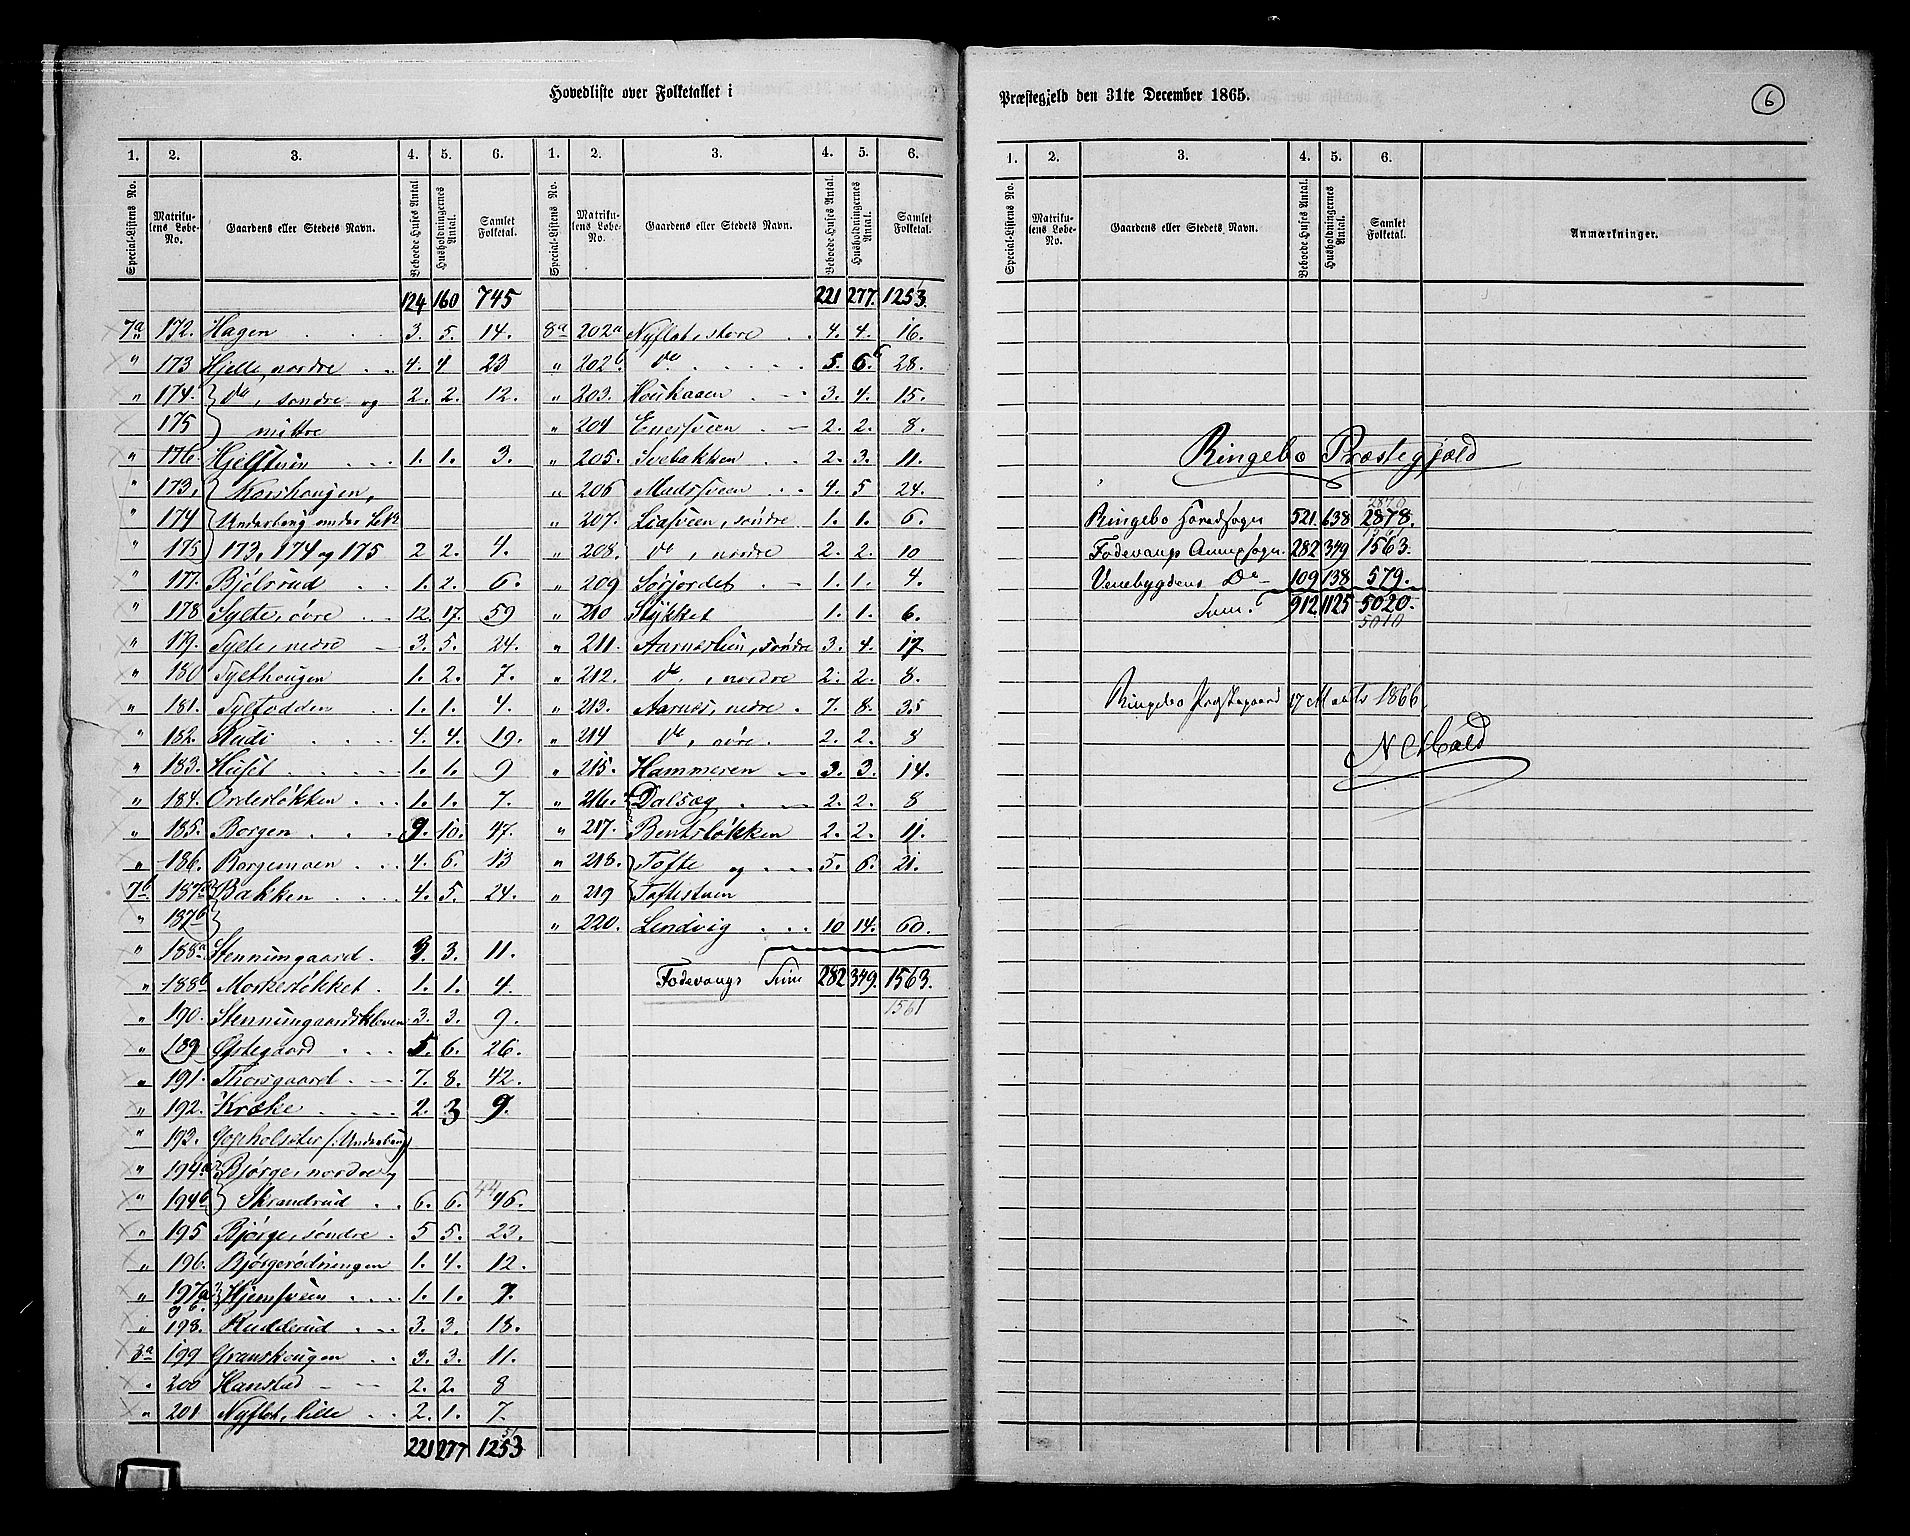 Hovedliste over Folketallet i
Præstegjeld den 31te December 1865.
6
1. 2. 3. 4. 5. 6. 1. 2. 3. 4. 5. 6.
Special-Listens No. Matrikulens Løbe-No. Gaardens eller Stedets Navn. Beboede Huses Antal Husholdningernes Antal. Samlet Folketal. Special-Listens No. Matrikulens Løbe-No. Gaardens eller Stedets Navn. Beboede Huses Antal. Husholdningernes Antal. Samlet Folketal.
124 160 745
7a 172. Hagen 3. 5. 14.
" 173 Hjelle, nordre 4. 4 23
" 174. do, søndre og 2. 2. 12.
175 mittre
" 176. Hjelstuin 1. 1. 3.
" 173. Korshougen,
" 174 Underbrug under L.No
" 175 173, 174 og 175 2 2. 4.
" 177. Bjölsrud 1. 2. 6.
" 178 Sylte, övre 12. 17. 59
" 179. Sylte, nedre 3. 5. 24.
" 180 Sylthougen 1. 2. 7.
" 181. Syltodden 1. 1. 4.
" 182. Rudi 4. 4. 19.
" 183. Huset 1. 1. 9
" 184. Ordesløkken 1. 1. 7.
" 185. Borgen 9. 10. 47.
" 186. Borgemoen 4. 6. 13
7b 187a Bakken 4. 5. 24.
" 187b
" 188a Stenumgaard. 3. 3. 11.
" 188b Moskesløkket. 1. 1. 4.
" 190. Stenumgaardskleven 3. 3. 9.
" 189 Østegaard 5. 6. 26.
" 191. Thorsgaard 7. 8. 42.
" 192. Kræke 2. 3 9.
" 193. Gopeholseter (: Underbrug)
" 194a Bjørge, nordre og
" 194b Skrandrud 6. 6. 44 46.
" 195 Bjørge, søndre. 5 5. 23.
" 196. Bjørgerødningen 1. 4. 12.
" 197a Hjemsveen 1. 1. 7.
g b.
" 198. Rudderud 3. 3. 18.
8a 199 Granskougen 3. 3. 11.
" 200 Hanstad 2. 2. 8
" 201 Nyflot, lille 2. 1. 7.
51
221 277 1253
221 277. 1253.
8a 202a Nyflot, store 4. 4. 16.
" 202b do 5. 6. 6 28.
" 203. Houkaaen 3. 4. 15.
" 204 Enersveen 2. 2. 8.
" 205. Svebakken 2. 3. 11.
" 206 Madssveen 4. 5 24.
" 207. Liasveen, søndre 1. 1. 6.
" 208. do, nordre 2. 2. 10
" 209 Sørjordet 1. 1. 4.
" 210 Stykket 1. 1. 6.
" 211. Aarneslien, søndre 3. 4. 17
" 212. do, nordre 2. 2. 8.
" 213. Aarnes, nedre 7. 8. 35
" 214 do, øvre. 2. 2. 8
" 215. Hammeren 3. 3. 14.
" 216. Dalsæg 2. 2. 8
" 217. Bentsløkken 2. 2. 11.
" 218. Tofte og 5. 6. 21.
" 219 Toftestuen
" 220. Lendvig 10 14. 60.
Fodevangs Sum 282 349. 1563.
1561
1. 2. 3. 4. 5. 6.
Special-Listens No. Matrikulens Løbe-No. Gaardens eller Stedets Navn. Beboede Huses Antal. Husholdningernes Antal. Samlet Folketal. Anmærkninger.
Ringebo Præstegjæld
Ringebo Hovedsogn 521. 638 2878.
Fodevangs Annexsogn. 282 349 1563.
Venebygdens Do 109 138 579.
Sum. 912 1125 5020.
5010
Ringebo Præstegaard 17 Marts 1866.